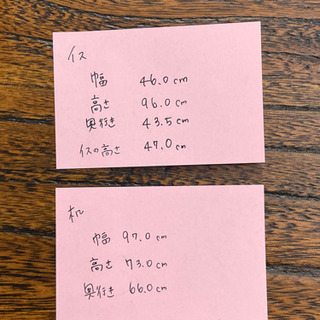 イス
幅 46.0cm
高さ 96.0cm
奥行き 43.5cm
イスの高さ 47.0cm
机
幅 97.0cm
高さ 73.0cm
奥行き 66.0cm